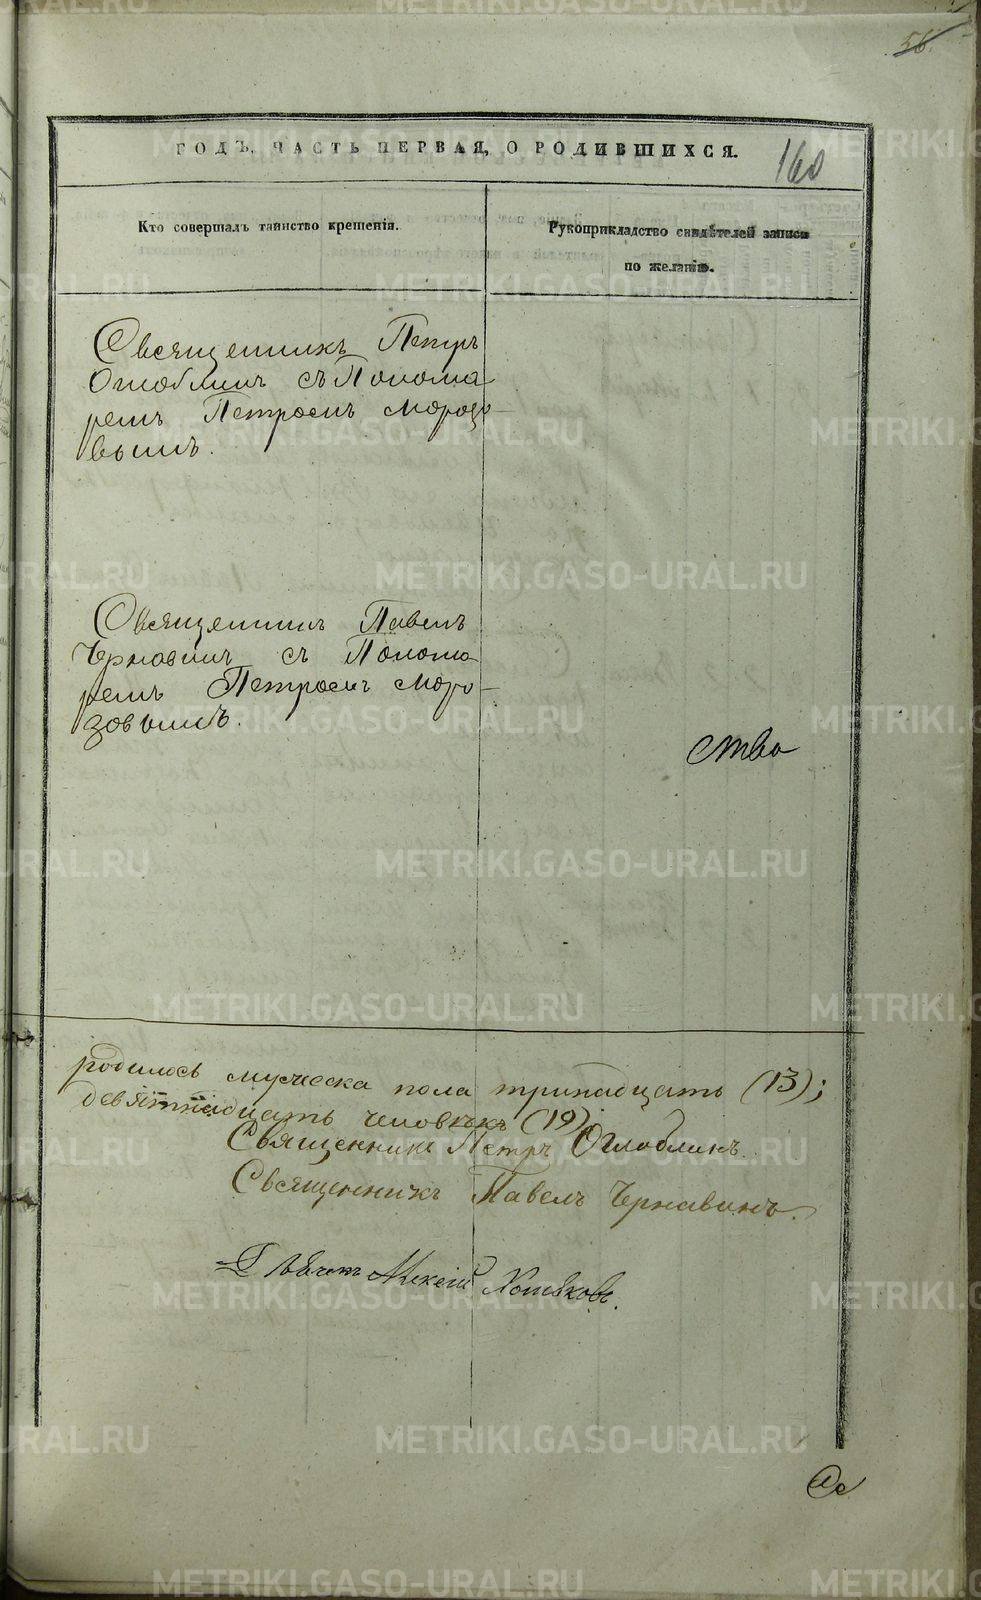 56.
ГОДЪ, ЧАСТЬ ПЕРВАЯ, О РОДИВШИХСЯ.
160
Кто совершалъ таинство крещенія.
Рукоприкладство свидѣтелей записи
по желанію.
Священникъ Петръ
Оглоблинъ съ Понома
ремъ Петромъ Морозо-
вымъ.
Священникъ Павелъ
Чернавинъ съ Понома
ремъ Петромъ Моро-
зовымъ.
ство
родилось мужеска пола тринадцать (13);
девятнадцать человѣкъ (19).
Священникъ Петръ Оглоблинъ.
Священникъ Павелъ Чернавинъ.
Алексій Хотяковъ.
METRIKI.GASO-URAL.RU